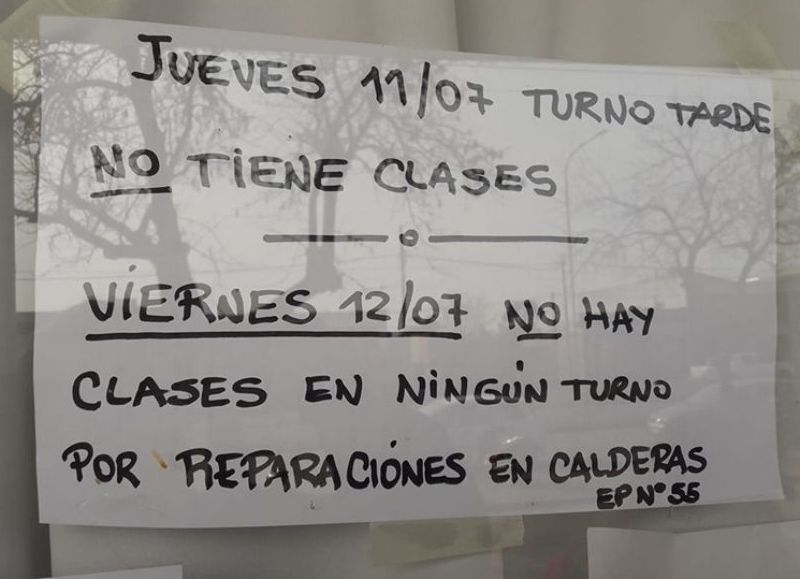 JUEVES 11/07 TURNO TARDE
NO TiENE CLASES
VIERNES 12/07 NO HAY
CLASES EN NiNGÚN TURNO
POR REPARACIÓNES EN CALDERAS
EP Nº 55